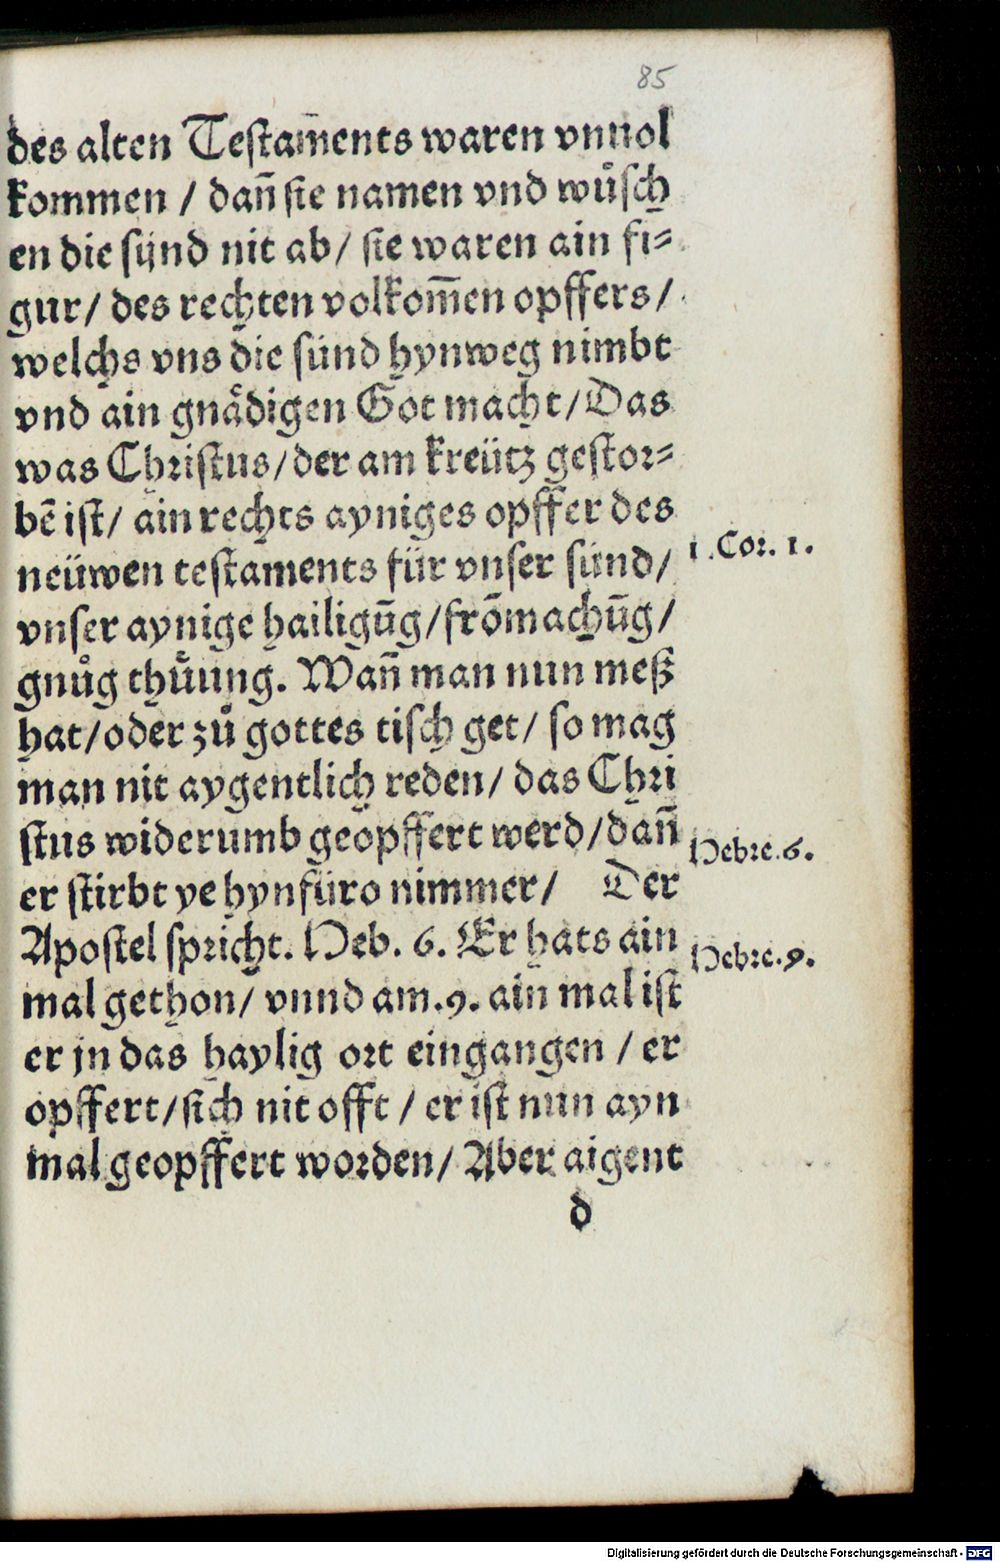 85
des alten Testam̄ents waren vnuol
kommen / dañ sie namen vnd wůsch
en die sünd nit ab / sie waren ain fi⸗
gur / des rechten volkom̄en opffers /
welchs vns die sünd hynweg nimbt
vnd ain gnädigen Got macht / Das
was Christus / der am kreütz gestor⸗
bē ist / ain rechts ayniges opffer des
neüwen testaments für vnser sünd /
1. Cor. 1.
vnser aynige hailigūg / frōmachūg /
gnůg thůung. Wañ man nun meß
hat / oder zů gottes tisch get / so mag
man nit aygentlich reden / das Chri
stus widerumb geopffert werd / dañ
Hebre. 6.
er stirbt ye hynfüro nimmer / Der
Apostel spricht. Heb. 6. Er hats ain
Hebre. 9.
mal gethon / vnnd am .9. ain mal ist
er jn das haylig ort eingangen / er
opffert / sich nit offt / er ist nun ayn
mal geopffert worden / Aber aigent
d
Digitalisierung gefördert durch die Deutsche Forschungsgemeinschaft - DFG